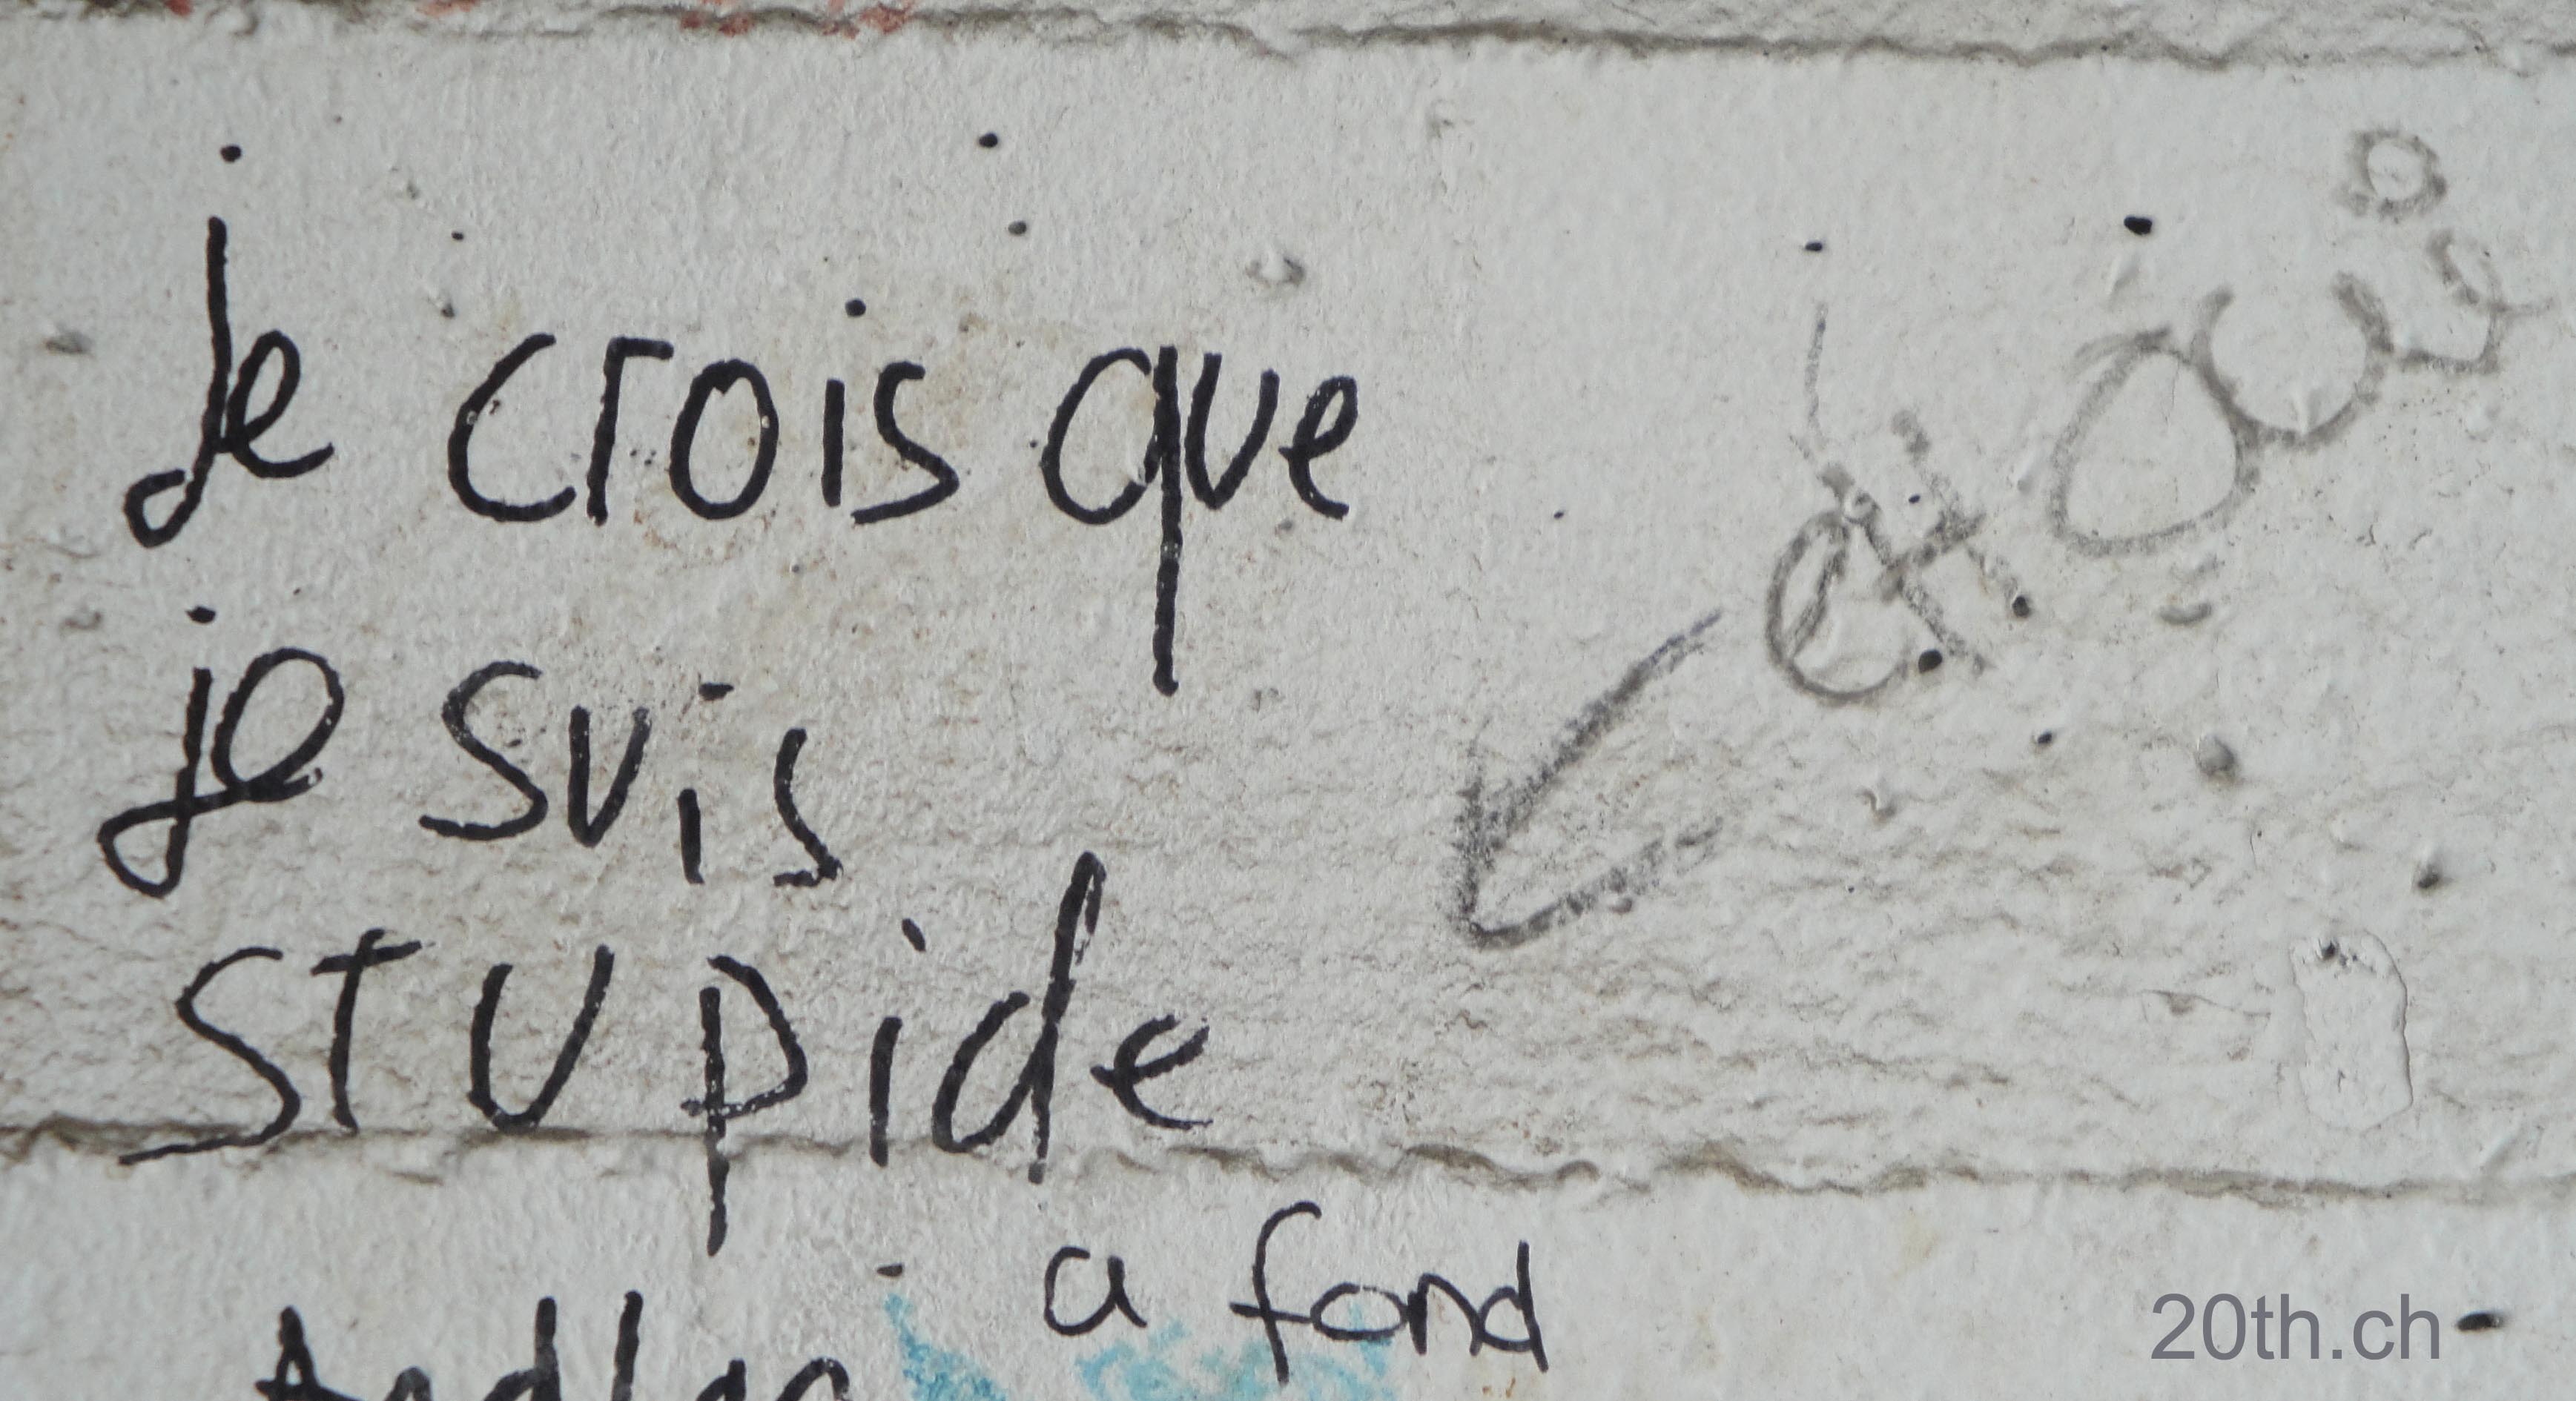 je crois que
je suis
stupide
et oui
a fond
20th.ch